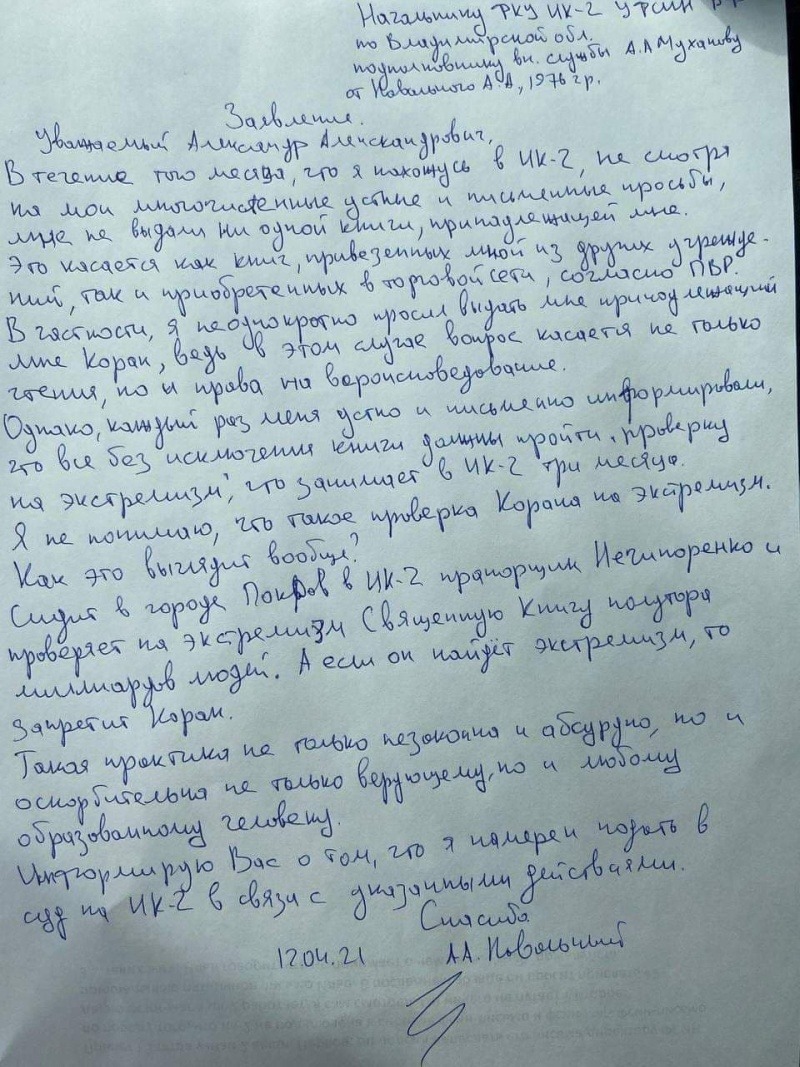 Начальнику ФКУ ИК-2 УФСИН
по Владимирской обл.
подполковнику вн. службы А.А Муханову
от Навального А.А, 1976 г р.
Заявление.
Уважаемый Александр Александрович,
В течение того месяца, что я нахожусь в ИК-2, не смотря
на мои многочисленные устные и письменные просьбы,
мне не выдали ни одной книги, принадлежащей мне.
Это касается как книг, привезенных мной из других учрежде-
ний, так и приобретенных в торговой сети, согласно ПВР.
В частности, я неоднократно просил выдать мне принадлежащий
мне Коран, ведь в этом случае вопрос касается не только
чтения, но и права на вероисповедование.
Однако, каждый раз меня устно и письменно информировали,
что все без исключения книги должны пройти "проверку
на экстремизм", что занимает в ИК-2 три месяца.
Я не понимаю, что такое проверка Корана на экстремизм.
Как это выглядит вообще?
Сидит в городе Покров в ИК-2 прапорщик Нечипоренко и
проверяет на экстремизм Священную Книгу полутора
миллиардов людей. А если он найдёт экстремизм, то
запретит Коран.
Такая практика не только незаконна и абсурдна, но и
оскорбительна не только верующему, но и любому
образованному человеку.
Информирую Вас о том, что я намерен подать в
суд на ИК-2 в связи с указанными действиями.
Спасибо
12.04.21 А.А. Навальный